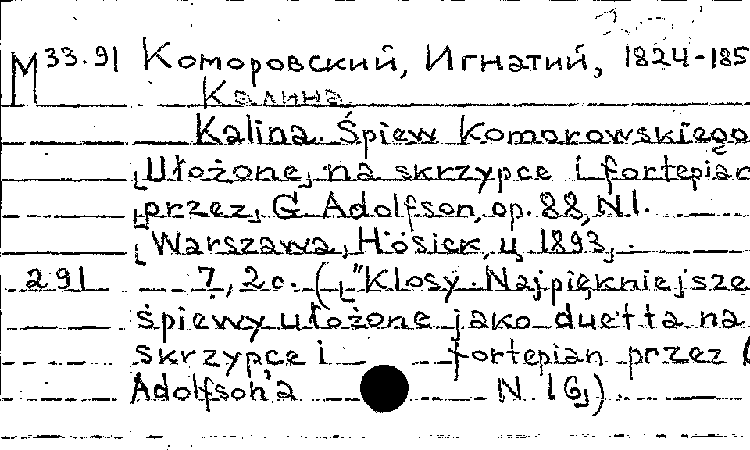 М 33.91 Коморовский, Игнатий, 1824-185
Калина
Kalina. Śpiew Komorowskiego
[Ułożone] na skrzypce i fortepian
[przez] G. Adolfson, op. 88, N1.
[Warszawa, Hösick, ц. 1893].
291 7, 2 с. (["Klosy. Najpiękniejsze
śpiewy ułożone jako duetta na
skrzypce i fortepian przez
Adolfson'a N. 16])